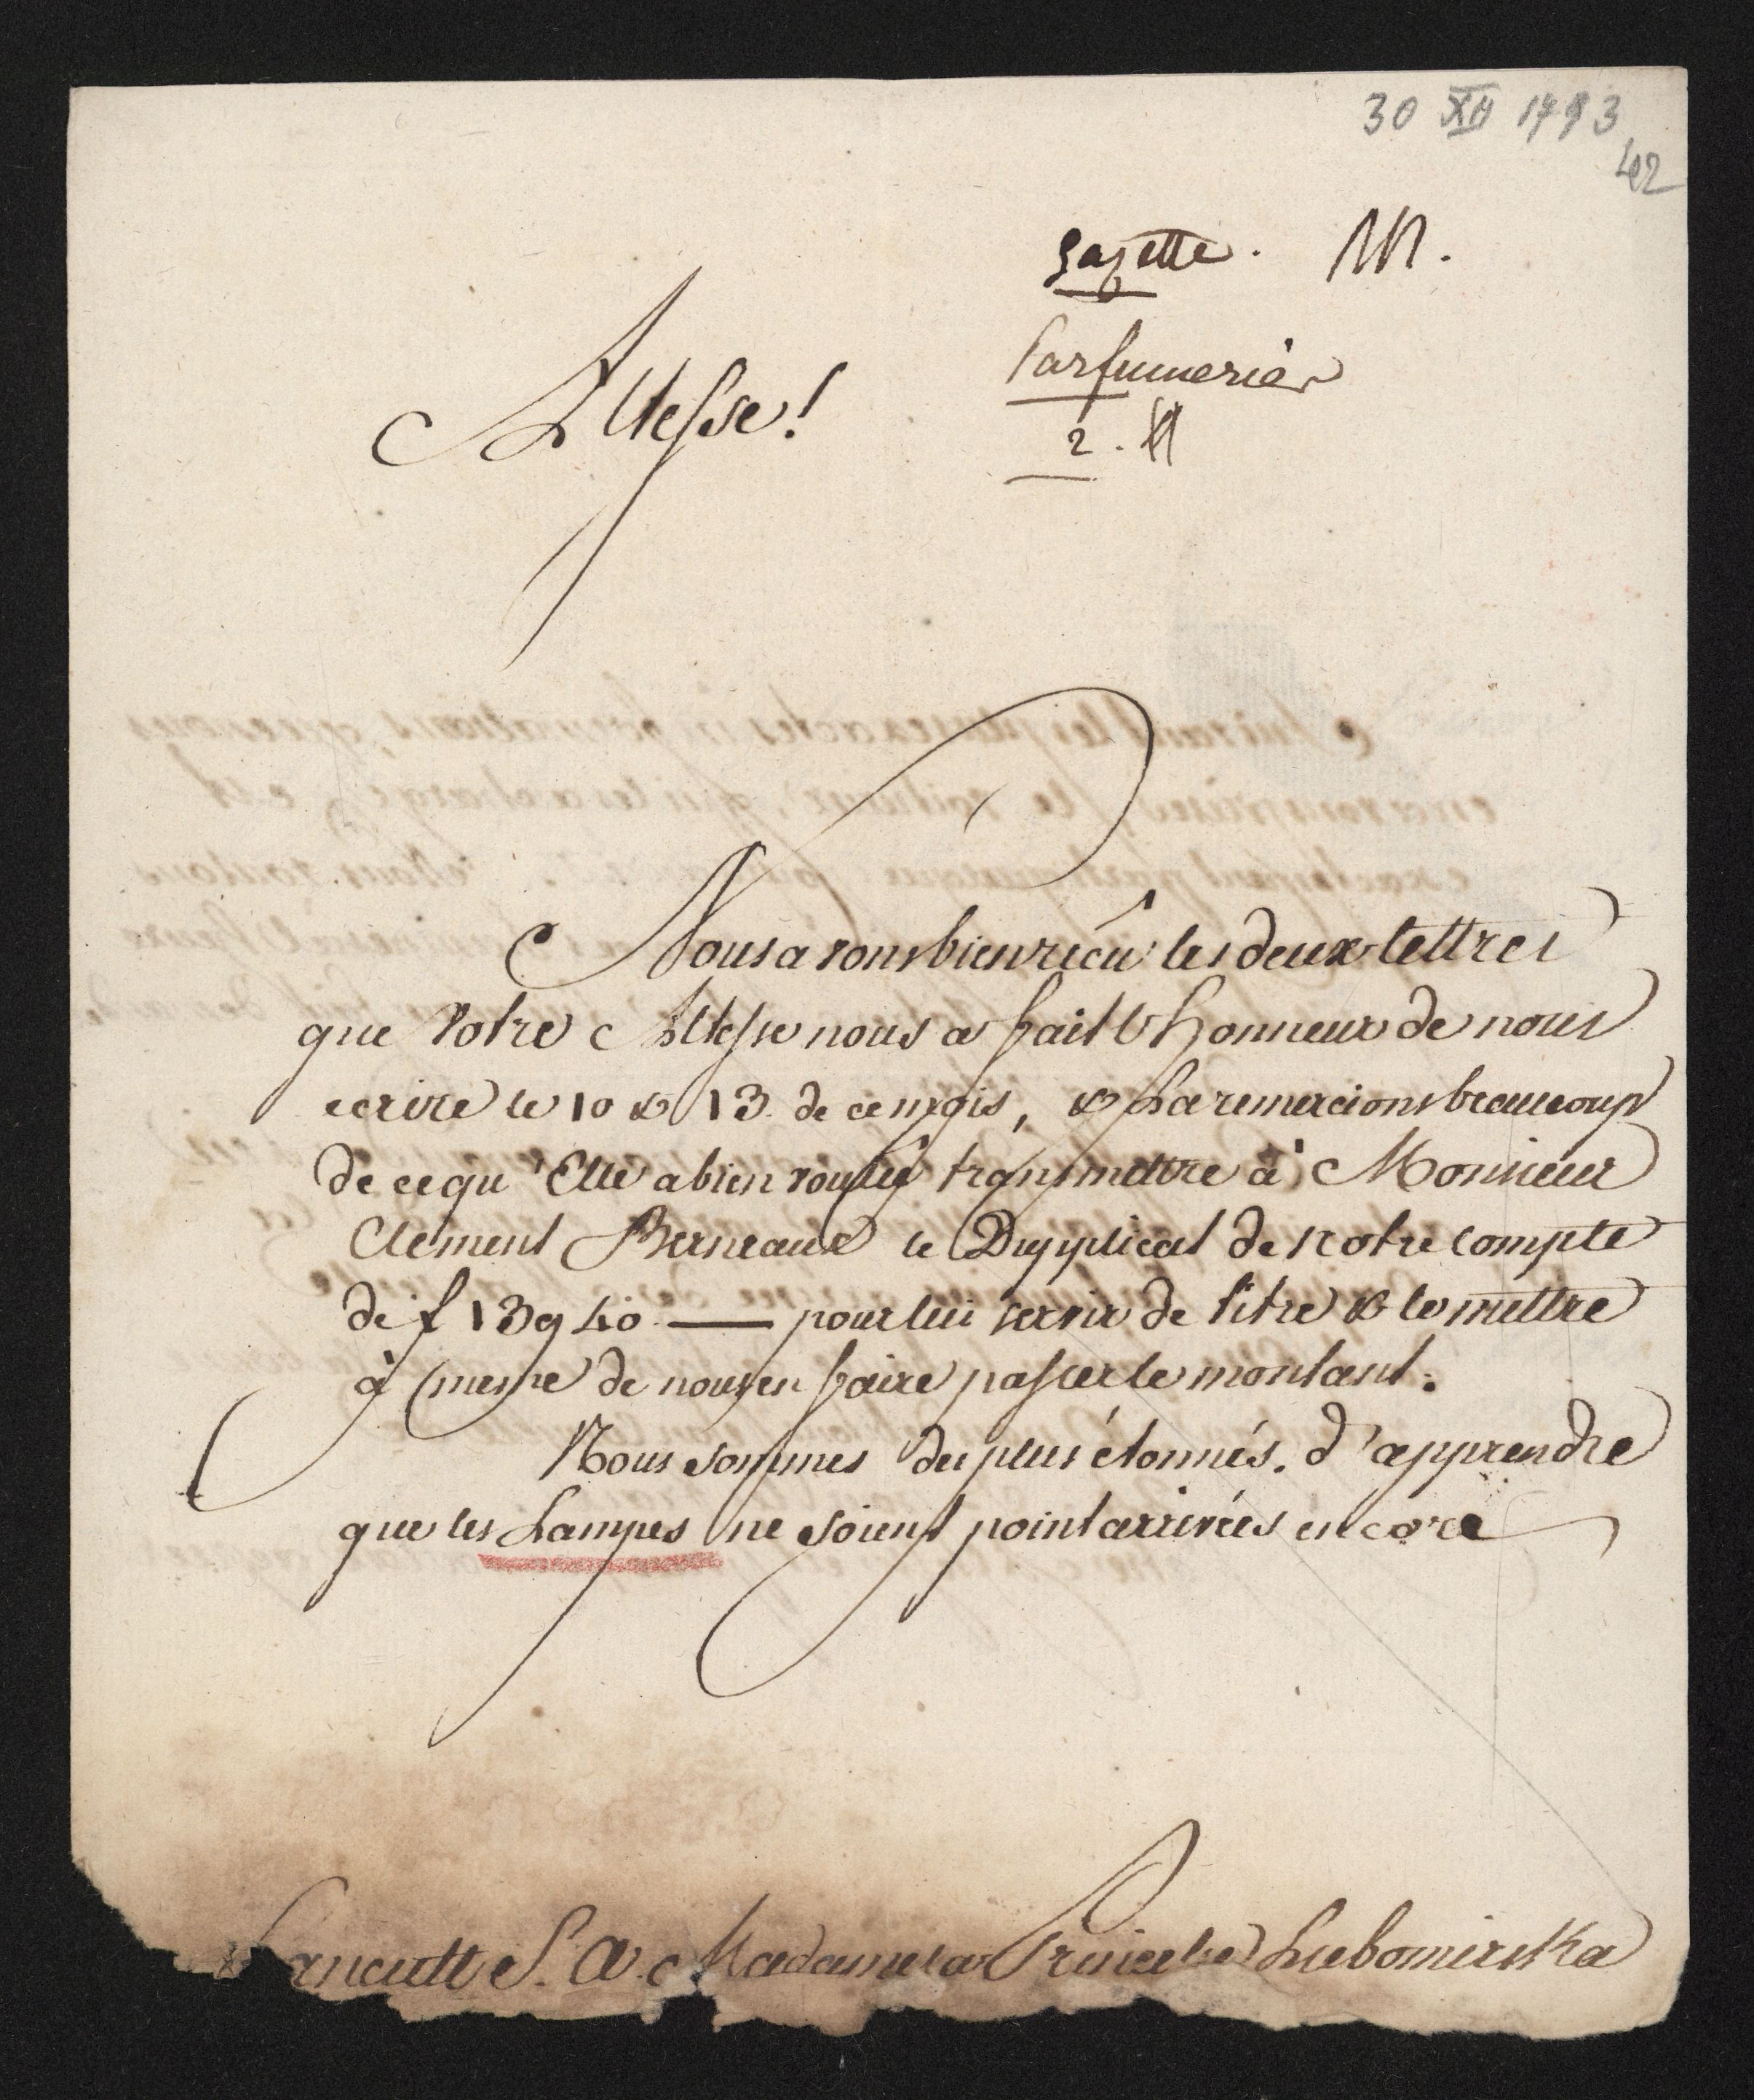 30 XII 1793
42
Gazette. M.
Parfumerie
2.
Altesse!
Nous avons bien recu les deux lettres
que Votre Altesse nous a fait l'honneur de nous
ecrire le 10 & 13 de ce mois, & La remercions beaucoup
de ce qu'Elle a bien voulu transmettre à Monsieur
Clement Berneaux le Dupplicat de notre compte
de f 139 40 — pour lui servir de titre & le mettre
à mesme de nous en faire passer le montant.
Nous sommes des plus étonnés. d'apprendre
que les Lampes ne soient point arrivées encore
Lancutt S. A. Madame la Princesse Lubomirska